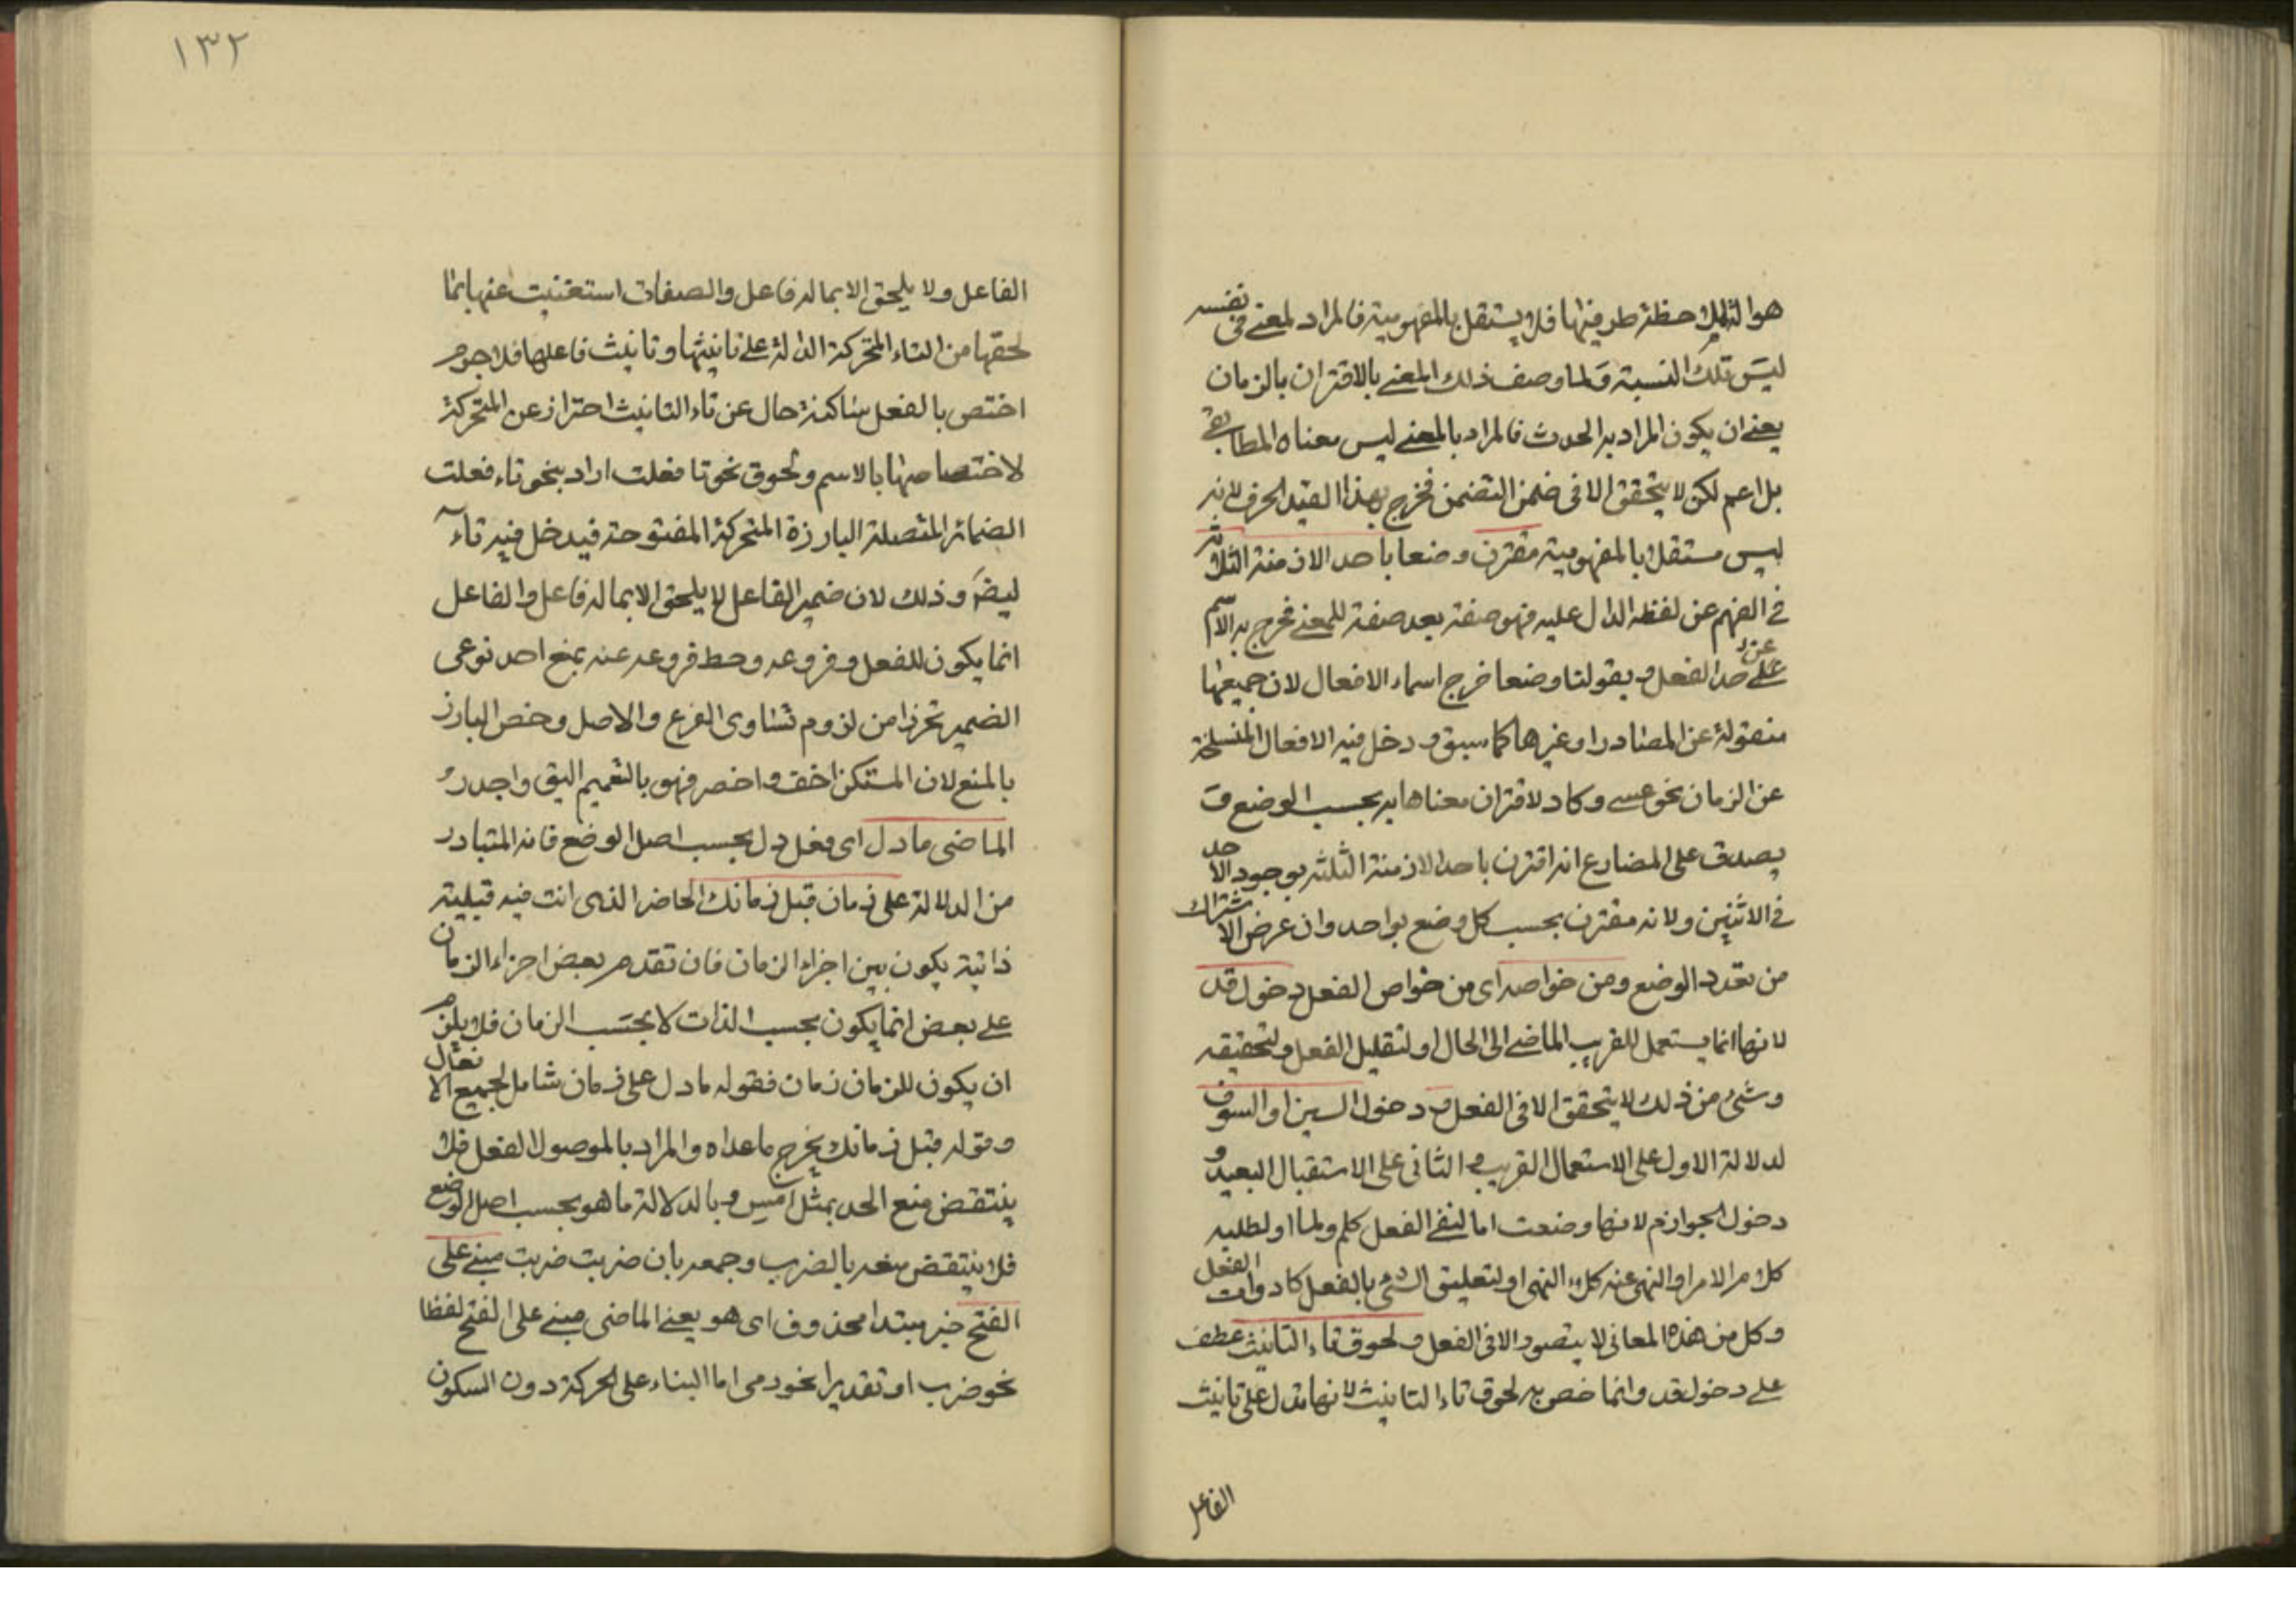 هو الة لملاحظة طرفيها فلا يستقل بالمفهومية فالمراد لمعنى فى نفسه
ليس تلك النسبة ولما وصف ذلك المعنى بالاقتران بالزمان
يعنى ان يكون المراد به الحدث فالمراد بالمعنى ليس معناه المطابقى
بل اعم لكن لا يتحقق الا فى ضمن التضمن فخرج بهذا القيد الحرف لانه
ليس مستقلا بالمفهومية مقترن وضعا باحد الازمنة الثلاثة
فى الفهم عن لفظه الدال عليه فهو صفة بعد صفة للمعنى فخرج به الاسم
عن حد الفعل وبقولنا وضعا خرج اسماء الافعال لان جميعها
منقولة عن المصادر او غيرها كما سبق ودخل فيه الافعال المنسلخة
عن الزمان نحو عسى وكاد لاقتران معناها به بحسب الوضع و
يصدق على المضارع انه اقترن باحد الازمنة الثلثة بوجود الاحد
فى الاثنين ولانه مقترن بحسب كل وضع بواحد وان عرض الاشتراك
من تعدد الوضع ومن خواصه اى من خواص الفعل دخول قد
لانها انما يستعمل للقريب الماضى الى الحال او لتقليل الفعل ولتحقيقه
وشئ من ذلك لا يتحقق الا فى الفعل ودخول السين او السوف
لدلالة الاول على الاستعمال القريب والثانى على الاستقبال البعيد و
دخول الجوازم لانها وضعت اما لنفى الفعل كلم ولما او لطلبه
كلام الامر او النهى عنه كلاء النهى او لتعليق الشئ بالفعل كادوات الفعل
وكل من هذه المعانى لا يتصور الا فى الفعل ولحوق تاء التانيث عطف
على دخول قد وانما خص به لحوق تاء التانيث لانها تدل على تانيث
الفاعل
١٣٢
الفاعل ولا يلحق الا بما له فاعل والصفات استغنيت عنها بما
لحقها من التاء المتحركة الدالة على تانيثها وتانيث فاعلها فلا جرم
اختص بالفعل ساكنة حال عن تاء التانيث احتراز عن المتحركة
لاختصاصها بالاسم ولحوق نحو تا فعلت اراد بنحو تاء فعلت
الضمائر المتصلة البارزة المتحركة المفتوحة فيدخل فيه تاء
ايضا وذلك لان ضمير الفاعل لا يلحق الا بما له فاعل والفاعل
انما يكون للفعل وفروعه وحط فروعه عنه بمنع احد نوعى
الضمير تحرزا من لزوم تساوى الفرع والاصل وخص البارز
بالمنع لان المستكن اخف واخصر فهو بالتعميم اليق واجدر و
الماضى ما دل اى فعل دل بحسب اصل الوضع فانه المتبادر
من الدلالة على زمان قبل زمانك الحاضر الذى انت فيه قبيلية
ذاتية يكون بين اجزاء الزمان فان تقدم بعض اجزاء الزمان
على بعض انما يكون بحسب الذات لا بحسب الزمان فلا يلزم
ان يكون للزمان زمان فقوله ما دل على زمان شامل لجميع الافعال
وقوله قبل زمانك يخرج ما عداه والمراد بالموصول الفعل فلا
ينتقض منع الحد بمثل امس وبالدلالة ما هو بحسب اصل الوضع
فلا ينتقض منعه بالضرب وجمعه بان ضربت ضربت مبنى على
الفتح خبر مبتدا محذوف اى هو يعنى الماضى مبنى على الفتح لفظا
نحو ضرب او تقديرا نحو رمى اما البناء على الحركة دون السكون